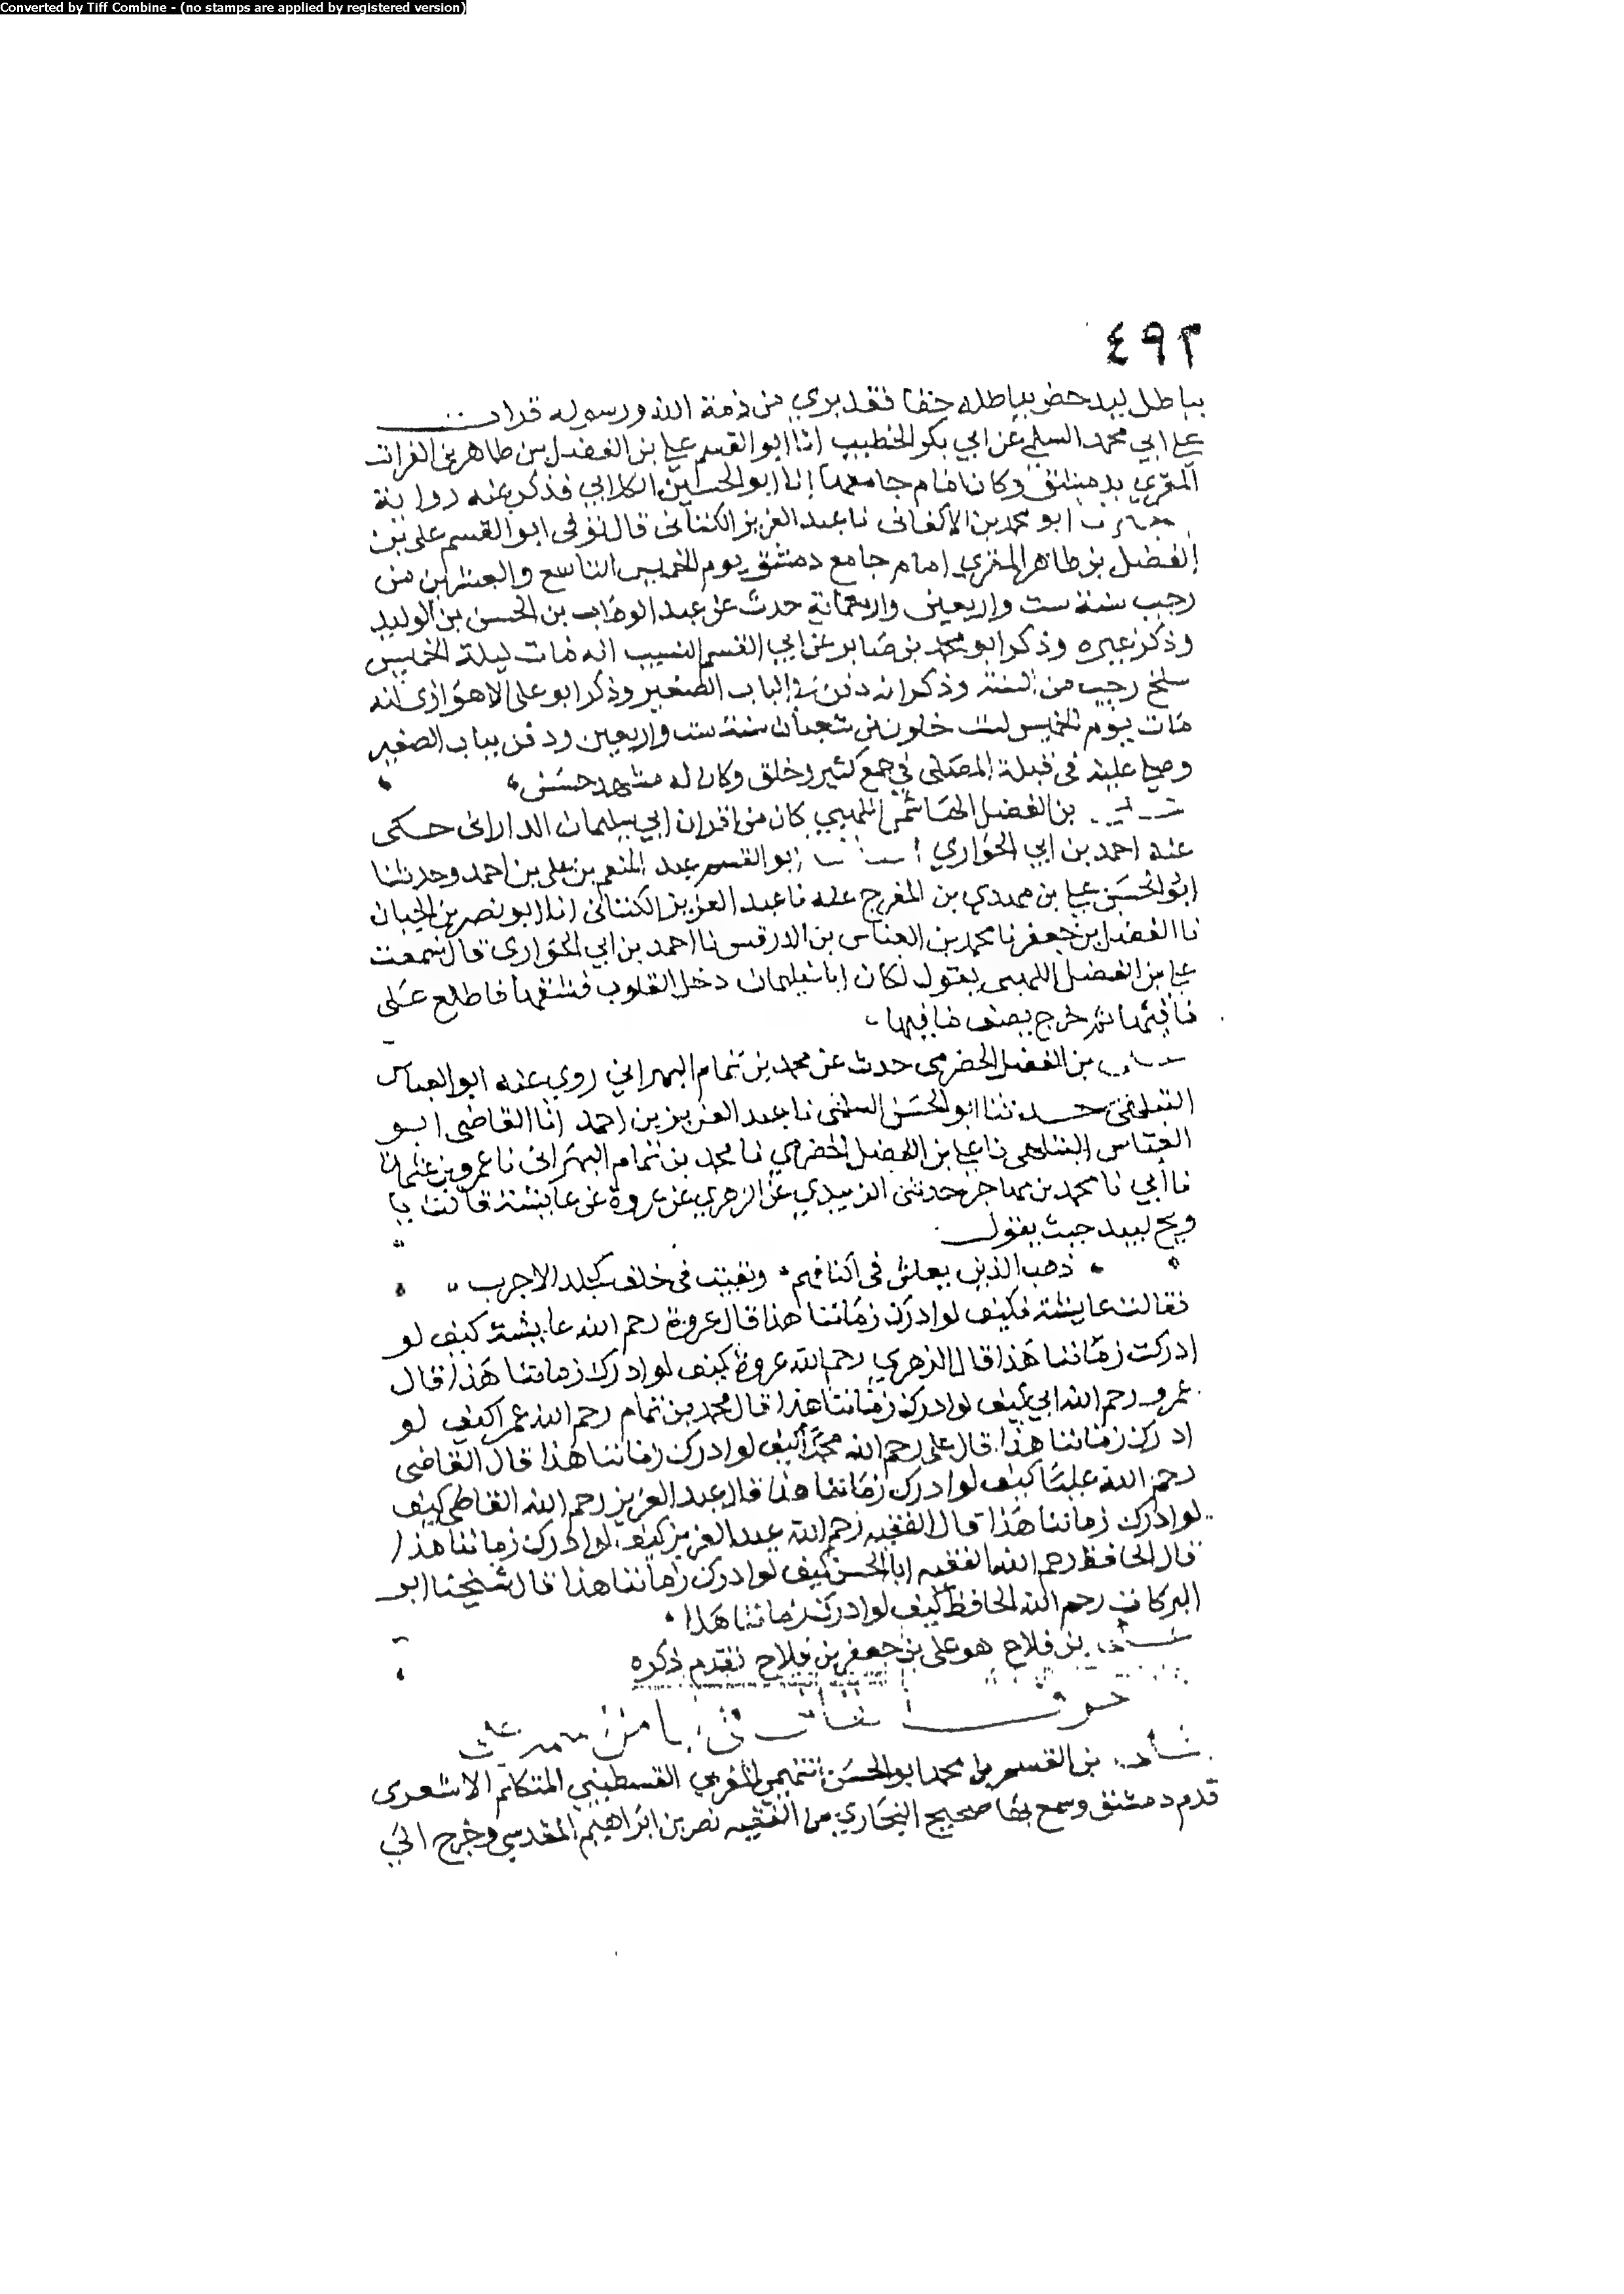 Converted by Tiff Combine - (no stamps are applied by registered version)
٤٩٢
بباطل ليدحض بباطله حقا فقد بري من ذمة الله ورسوله قرات
علي ابي محمد السلمي عن ابي بكر الخطيب انا ابو القسم علي بن الفضل بن طاهر بن الفرات
المقري بدمشق وكان امام جامعها انا ابو الحسين الكلابي فذكر عنه رواية
ابو محمد بن الاكفاني نا عبد العزيز الكتاني قال توفي ابو القسم علي بن
الفضل بن طاهر المقري امام جامع دمشق يوم الخميس التاسع والعشرين من
رجب سنة ست واربعين واربعمائة حدث عن عبد الوهاب بن الحسن بن الوليد
وذكر غيره وذكر ابو محمد بن صابر عن ابي القسم النسيب انه مات ليلة الخميس
سلخ رجب من السنة وذكر انه دفن في الباب الصغير وذكر ابو علي الاهوازي انه
مات يوم الخميس لست خلون من شعبان سنة ست واربعين ودفن بباب الصغير
وصلي عليه في قبلة المصلى في جمع كثير وخلق وكان له مشهد حسن
بن الفضل الهاشمي اللهبي كان من اقران ابي سليمان الداراني حكى
عنه احمد بن ابي الحواري ابو القسم عبد المنعم بن علي بن احمد وحدثنا
ابو الحسن علي بن مهدي بن المفرج عنه نا عبد العزيز الكتاني انا ابو نصر بن الجبان
نا الفضل بن جعفر نا محمد بن العباس بن الدرفس نا احمد بن ابي الحواري قال سمعت
علي بن الفضل اللهبي يقول لكان ابا سليمان دخل القلوب فشقها فاطلع على
ما فيها ثم خرج يصف ما فيها
بن الفضل الحضرمي حدث عن محمد بن تمام البهراني روي عنه ابو العباس
حدثنا ابو الحسن السلمي نا عبد العزيز بن احمد انا القاضي ابو
العباس نا علي بن الفضل الحضرمي نا محمد بن تمام البهراني نا عمرو بن عثمان
نا أبي نا محمد بن مهاجر حدثني الزبيدي عن الزهري عن عروة عن عايشة قالت يا
ويح لبيد حيث يقول
ذهب الذين يعاش في اكنافهم وبقيت في خلف كجلد الاجرب
فقالت عايشة فكيف لو ادرك زماننا هذا قال عروة رحم الله عايشة كيف لو
ادركت زماننا هذا قال الزهري رحم الله عروة كيف لو ادرك زماننا هذا قال
عمرو رحم الله ابي كيف لو ادرك زماننا هذا قال محمد بن تمام رحم الله عمرا كيف لو
ادرك زماننا هذا قال علي رحم الله محمدا كيف لو ادرك زماننا هذا قال القاضي
رحم الله عليا كيف لو ادرك زماننا هذا قال عبد العزيز رحم الله القاضي كيف
لو ادرك زماننا هذا قال الفقيه رحم الله عبد العزيز كيف لو ادرك زماننا هذا
قال الحافظ رحم الله الفقيه ابا الحسن كيف لو ادرك زماننا هذا قال شيخنا ابو
البركات رحم الله الحافظ كيف لو ادرك زماننا هذا
بن فلاح هو علي بن جعفر بن فلاح تقدم ذكره
بن القسم بن محمد ابو الحسن التميمي المغربي القسطيني المتكلم الاشعري
قدم دمشق وسمع بها صحيح البخاري من الفقيه نصر بن ابراهيم المقدسي وخرج الي